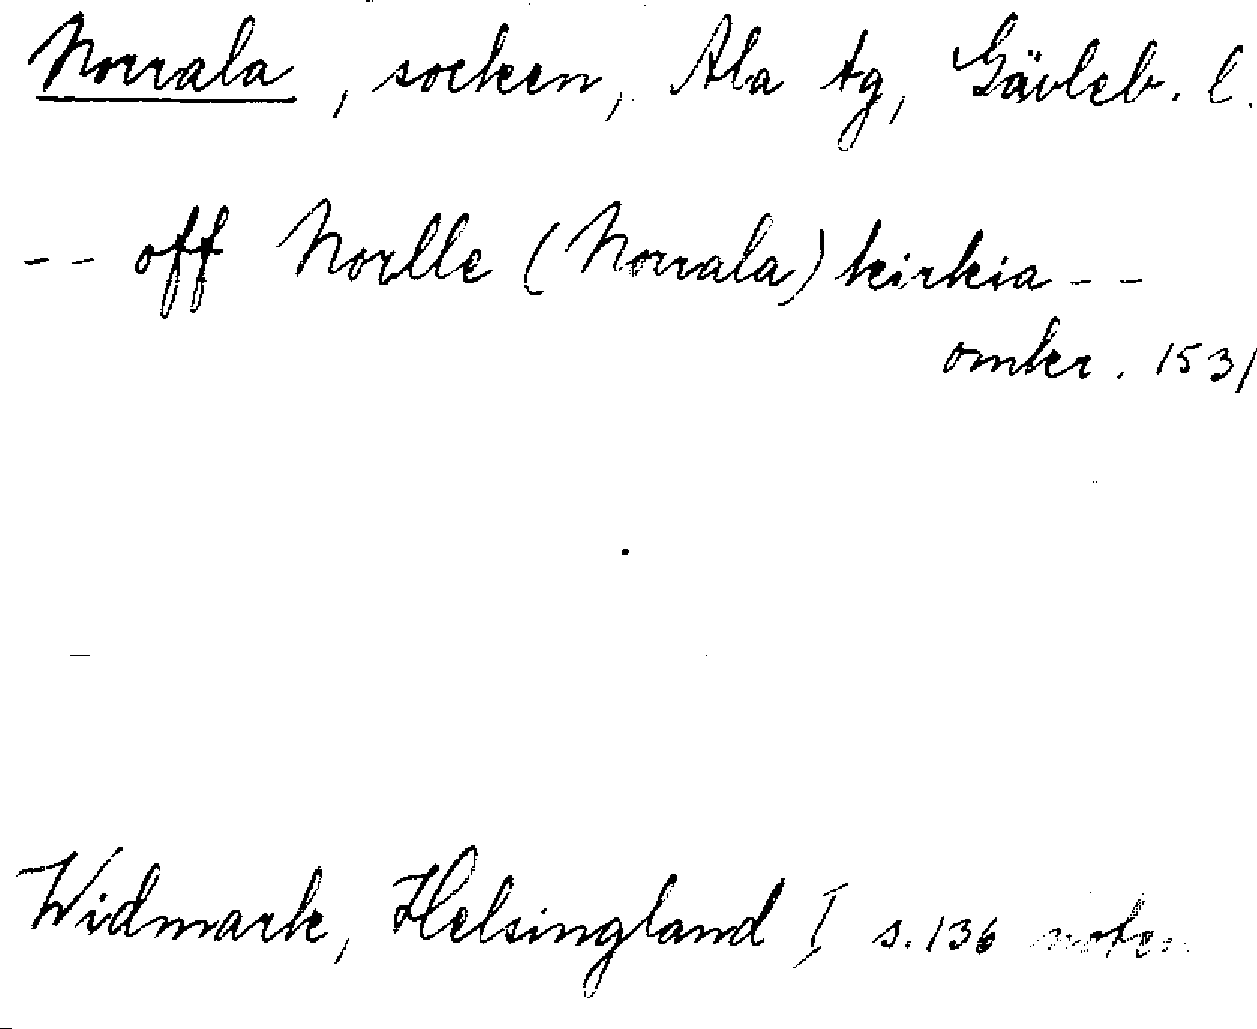 Norrala, socken, Ala tg, Gävleb. l.
-- off Norlle (Norrala) kirkia --
omkr. 1531
Widmark, Helsingland I s. 136 noten